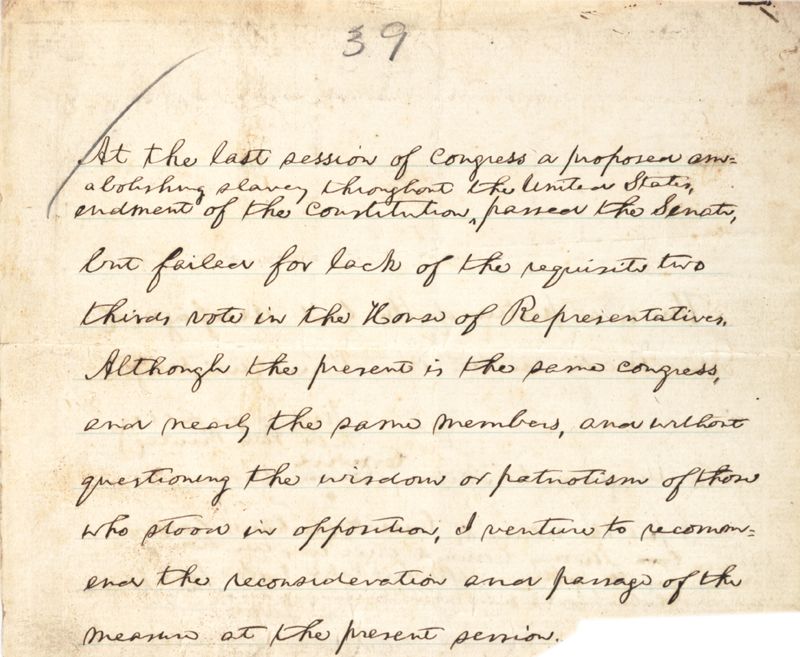 39
At the last session of Congress a proposed am=
abolishing slavery throughout the United States,
endment of the Constitution, passed the Senate,
but failed for lack of the requisite two
thirds vote in the House of Representatives.
Although the present is the same Congress,
and nearly the same members, and without
questioning the wisdom or patriotism of those
who stood in opposition, I venture to recomm=
end the reconsideration and passage of the
measure at the present session.